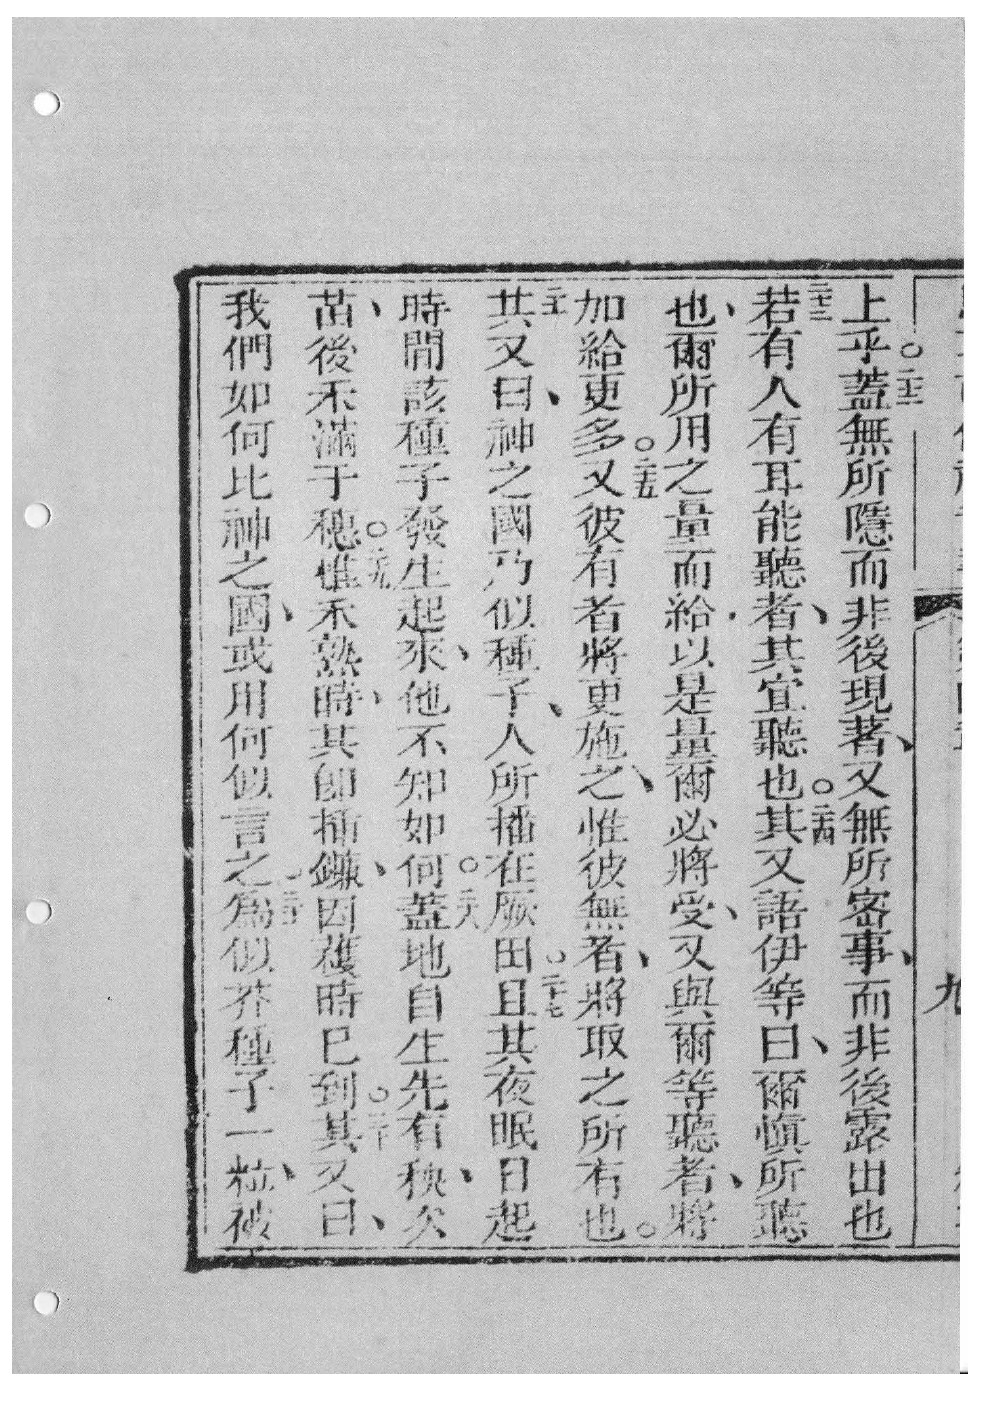 九
上乎。二十二蓋無所隱而非後現著、又無所密事、而非後露出也
二十三若有人有耳能聽者、其宜聽也。二十四其又語伊等曰、爾慎所聽
也、爾所用之量而給、以是量爾必將受、又與爾等聽者、將
加給更多。二十五又彼有者將更施之、惟彼無者、將取之所有也。
二十六其又曰、神之國乃似種子、人所播在厥田。二十七且其夜眠日起
時間該種子發生起來、他不知如何。二十八蓋地自生先有秧、次
苗、後禾滿于穗。二十九惟禾熟時、其卽插鐮、因穫時已到。三十其又曰、
我們如何比神之國、或用何似言之。三十一爲似芥種子一粒、被